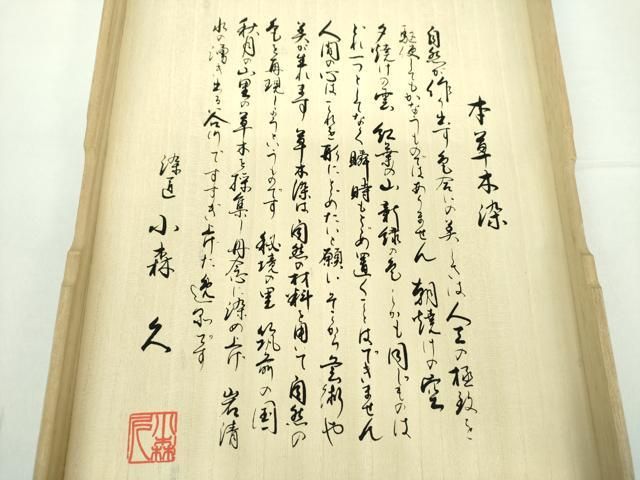 本草木染
自然が作り出す色合いの美しさは人工の極致を
駆使してもかなうものではありません 朝焼けの空
夕焼けの雲 紅葉の山 新緑の色 しかも同じものは
どれ一つとしてなく瞬時もとどめ置くことはできません
人間の心はこれを形にとどめたいと願い そこから芸術や
美が生れます 草木染は自然の材料を用いて自然の
色を再現しようというものです 秘境の里 筑前の国
秋月の山里の草木を採集し丹念に染め上げ 岩清
水の湧き出る谷川ですすぎ上げた逸品です
染匠 小森 久
小森久